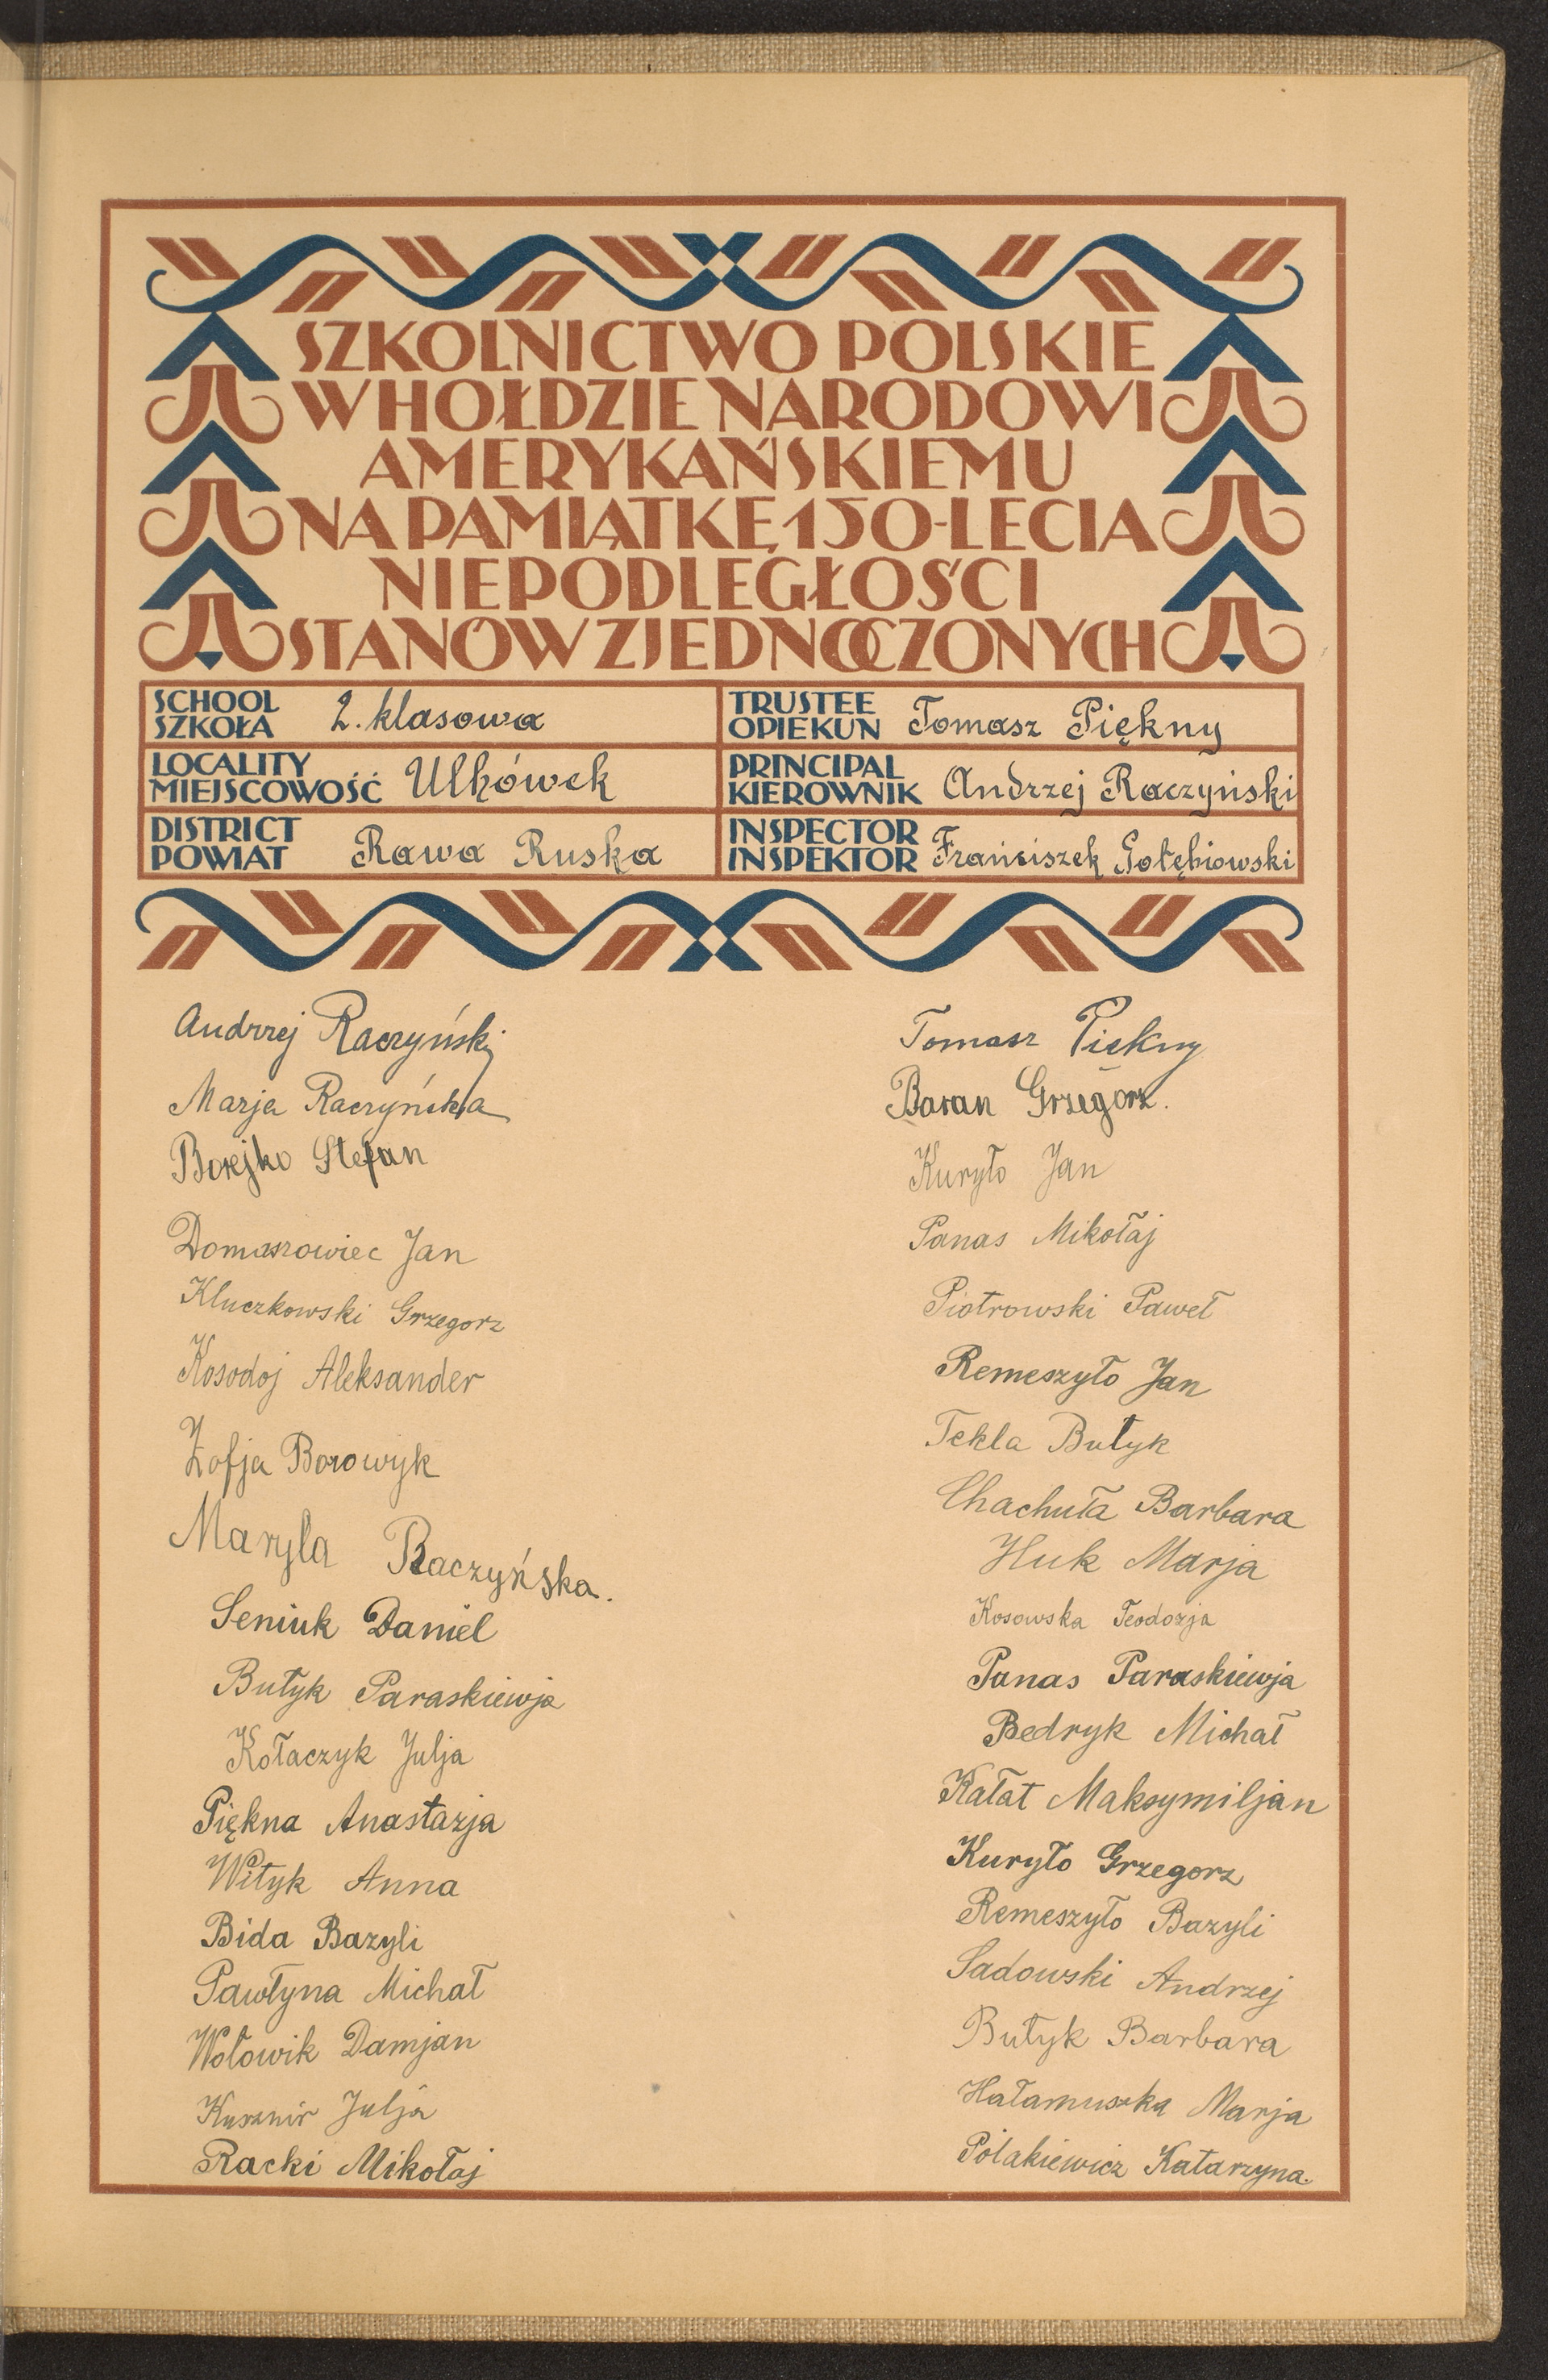 SZKOLNICTWO POLSKIE
W HOŁDZIE NARODOWI
AMERYKAŃSKIEMU
NA PAMIĄTKĘ 150-LECIA
NIEPODLEGŁOŚCI
STANÓW ZJEDNOCZONYCH
SCHOOL
SZKOŁA 2. klasowa
LOCALITY
MIEJSCOWOŚĆ Ulhówek
DISTRICT
POWIAT Rawa Ruska
TRUSTEE
OPIEKUN Tomasz Piękny
PRINCIPAL
KIEROWNIK Andrzej Raczyński
INSPECTOR
INSPEKTOR Franciszek Gołębiowski
Andrzej Raczyński
Marja Raczyńska
Borejko Stefan
Domaszowiec Jan
Kluczkowski Grzegorz
Kosodoj Aleksander
Zofja Borowyk
Maryla Raczyńska.
Seniuk Daniel
Butyk Paraskiewja
Kołaczyk Julja
Piękna Anastazja
Wityk Anna
Bida Bazyli
Pawłyna Michał
Wołowik Damjan
Kusznir Julja
Racki Mikołaj
Tomasz Piękny
Baran Grzegorz.
Kuryło Jan
Panas Mikołaj
Piotrowski Paweł
Remeszyło Jan
Tekla Butyk
Chachuła Barbara
Huk Marja
Kosowska Teodozja
Panas Paraskiewja
Bedryk Michał
Kałat Maksymiljan
Kuryło Grzegorz
Remeszyło Bazyli
Sadowski Andrzej
Butyk Barbara
Hałamuszka Marja
Polakiewicz Katarzyna.